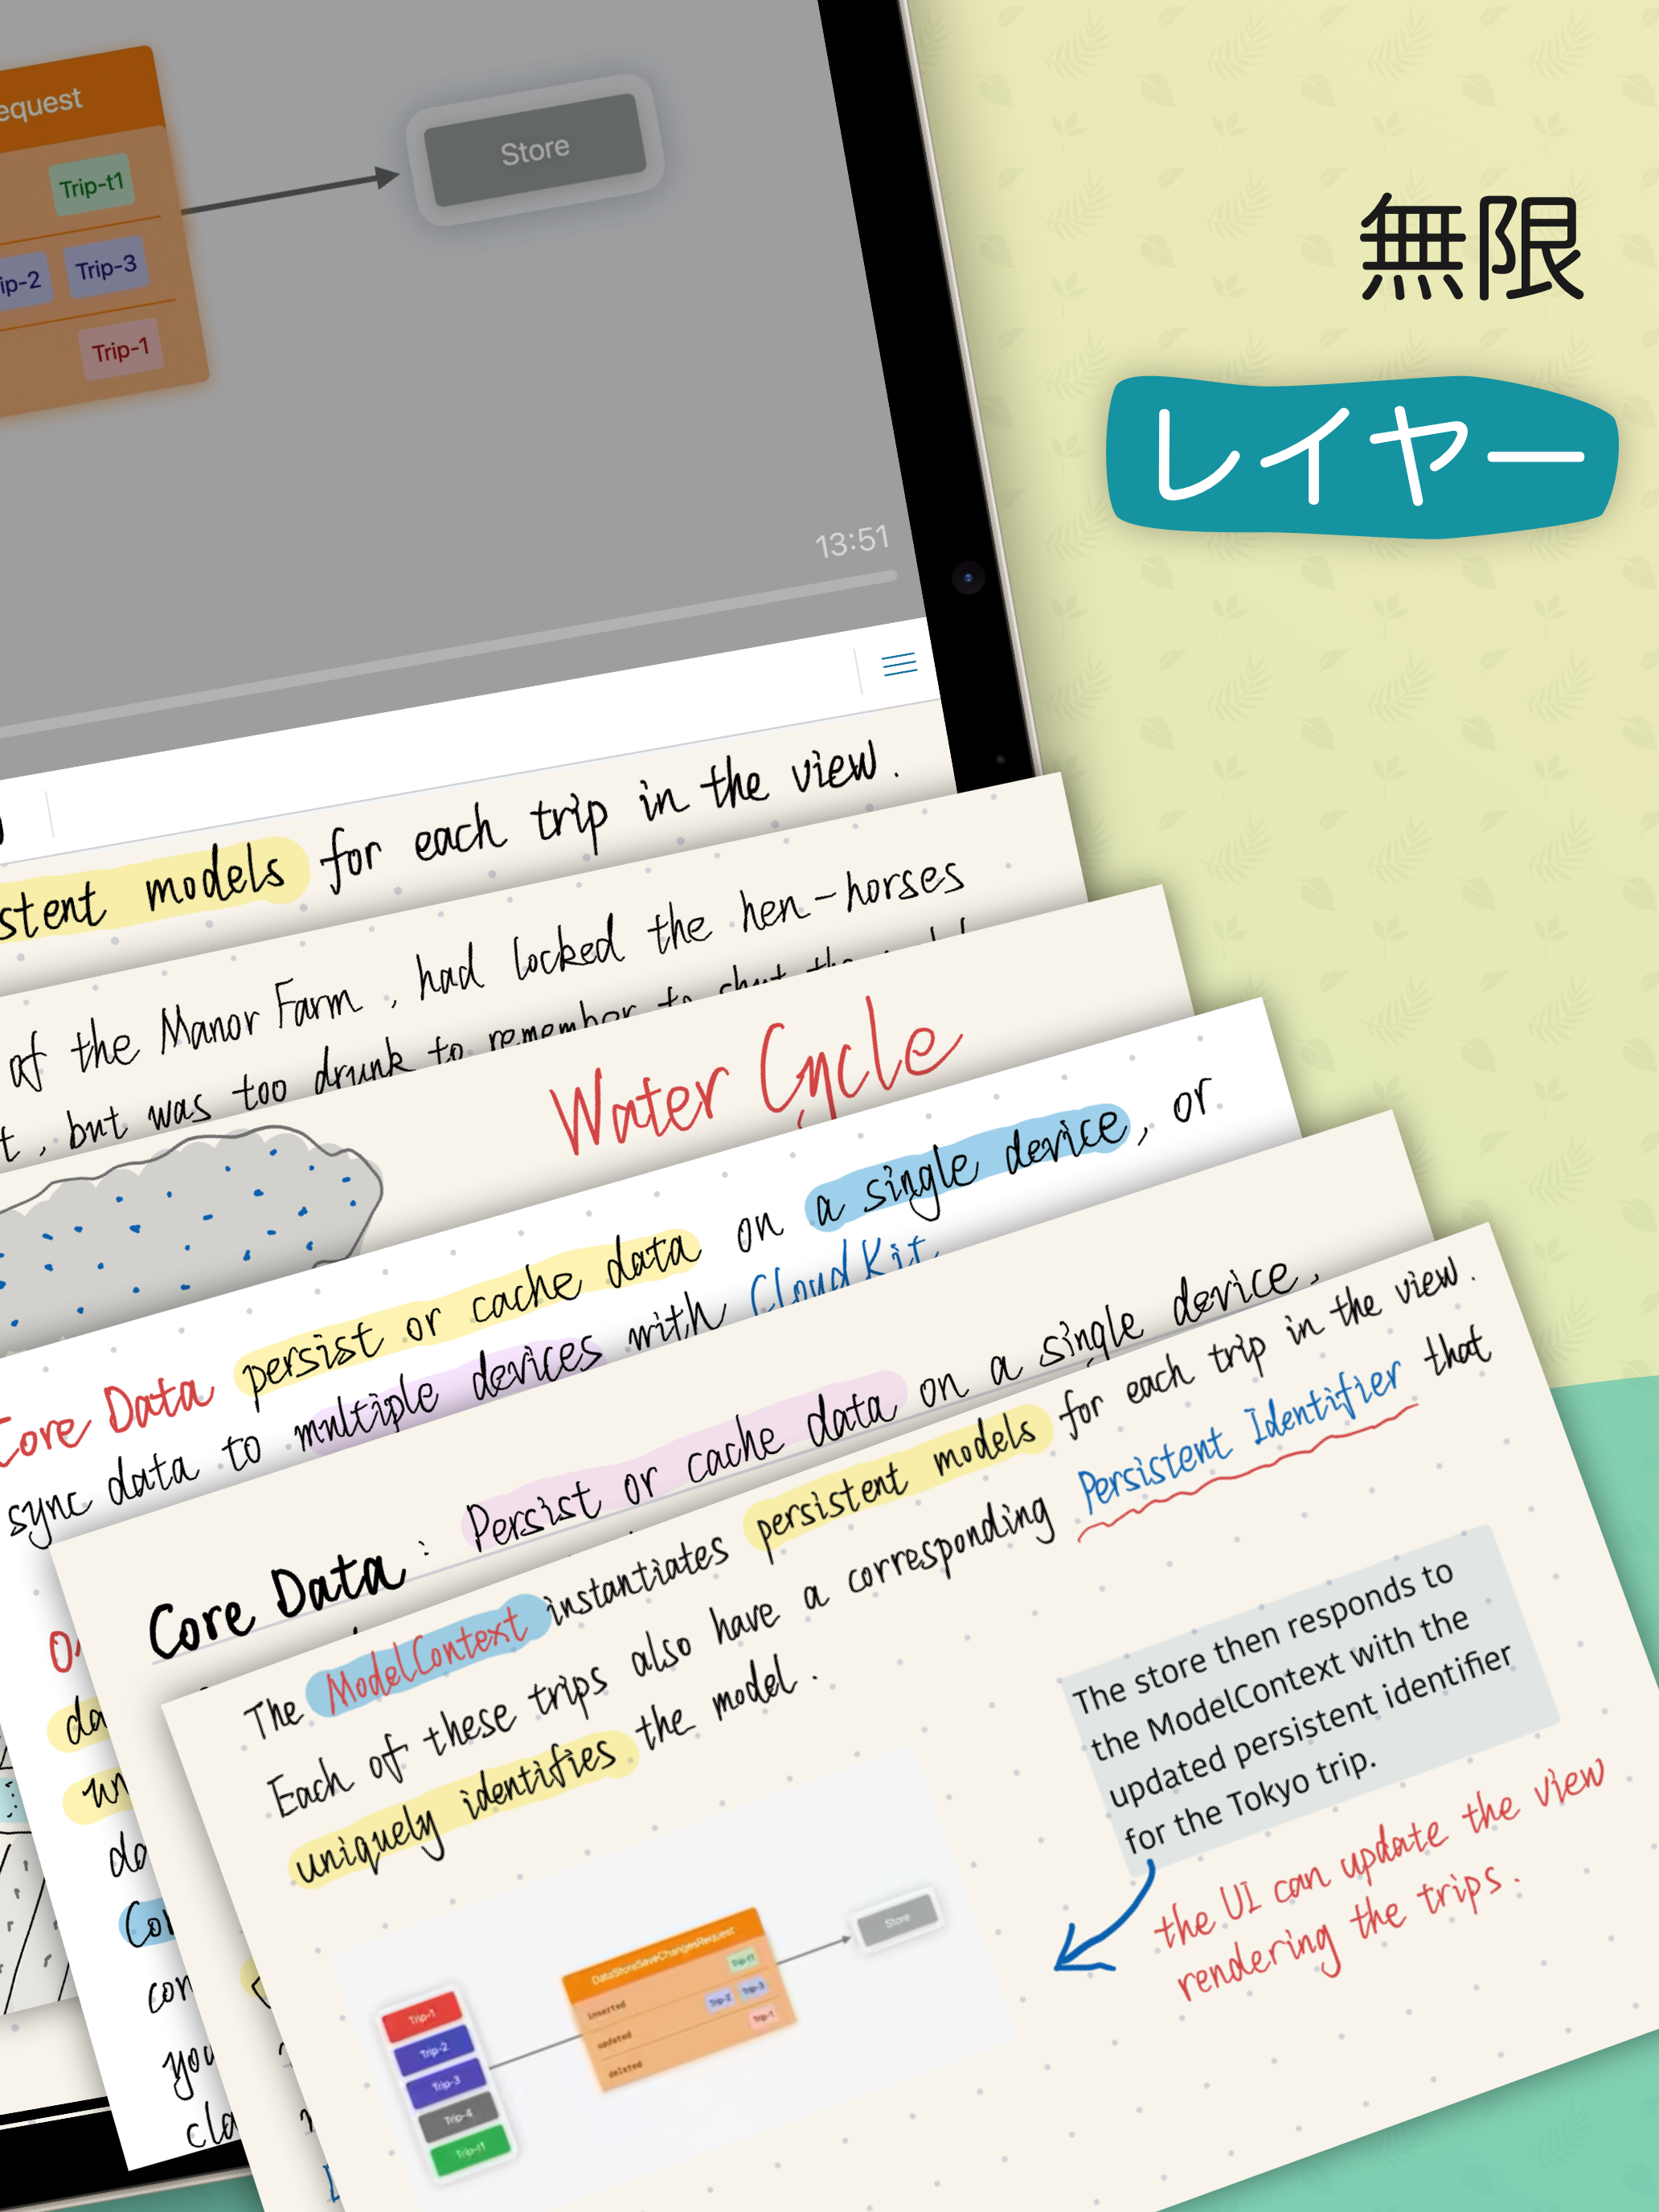 equest
Trip-t1
ip-2 Trip-3
Trip-1
Store
13:51
無限
レイヤー
stent models for each trip in the view.
of the Manor Farm, had locked the hen-horses
t, but was too drunk to remember to shut the
Water Cycle
Core Data persist or cache data on a single device, or
sync data to multiple devices with CloudKit
da
do
Cor
con
you
cla
Core Data : Persist or cache data on a single device,
The ModelContext instantiates persistent models for each trip in the view.
Each of these trips also have a corresponding Persistent Identifier that
uniquely identifies the model.
The store then responds to
the ModelContext with the
updated persistent identifier
for the Tokyo trip.
the UI can update the view
rendering the trips.
Trip-1
Trip-2
Trip-3
Trip-4
Trip-t1
DataStoreSaveChangesRequest
inserted Trip-t1
updated Trip-2 Trip-3
deleted Trip-1
Store